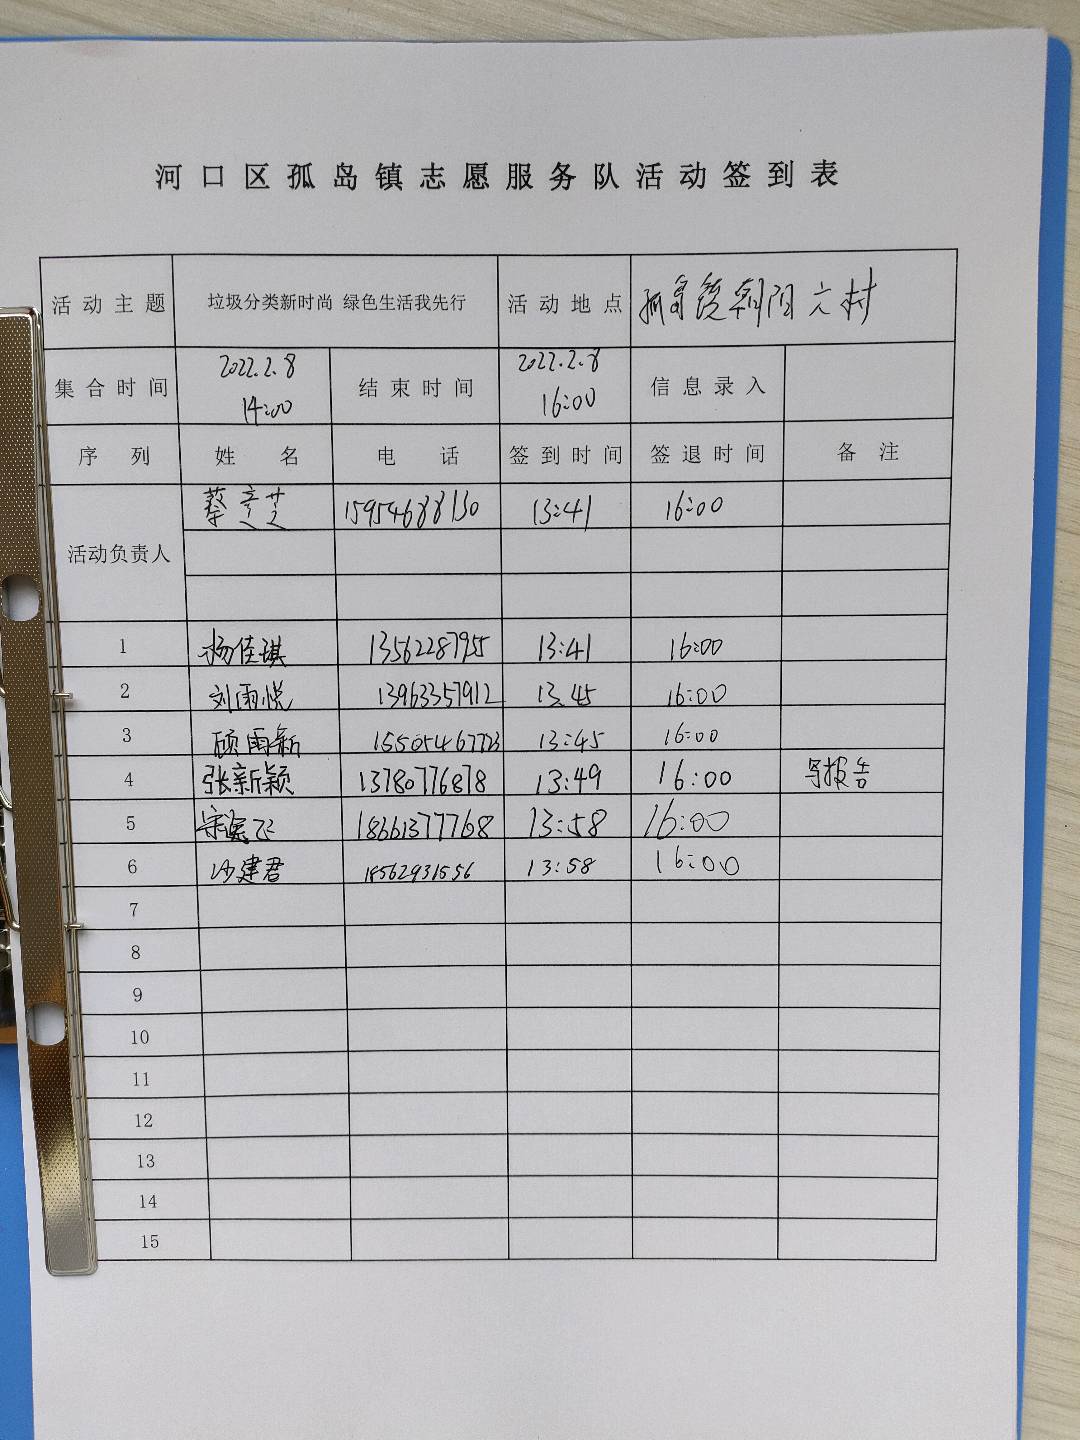 河口区孤岛镇志愿服务队活动签到表
活动主题 垃圾分类新时尚 绿色生活我先行 活动地点 孤岛镇朝阳六村
集合时间 2022.2.8 14:00 结束时间 2022.2.8 16:00 信息录入
序列 姓名 电话 签到时间 签退时间 备注
活动负责人 蔡彦芝 15954688130 13:41 16:00
1 杨佳琪 13562287955 13:41 16:00
2 刘雨悦 13963357912 13:45 16:00
3 顾雨新 15505467723 13:45 16:00
4 张新颖 13780776878 13:49 16:00 写报告
5 宋 飞 18661377768 13:58 16:00
6 沙建君 18562931556 13:58 16:00
7
8
9
10
11
12
13
14
15